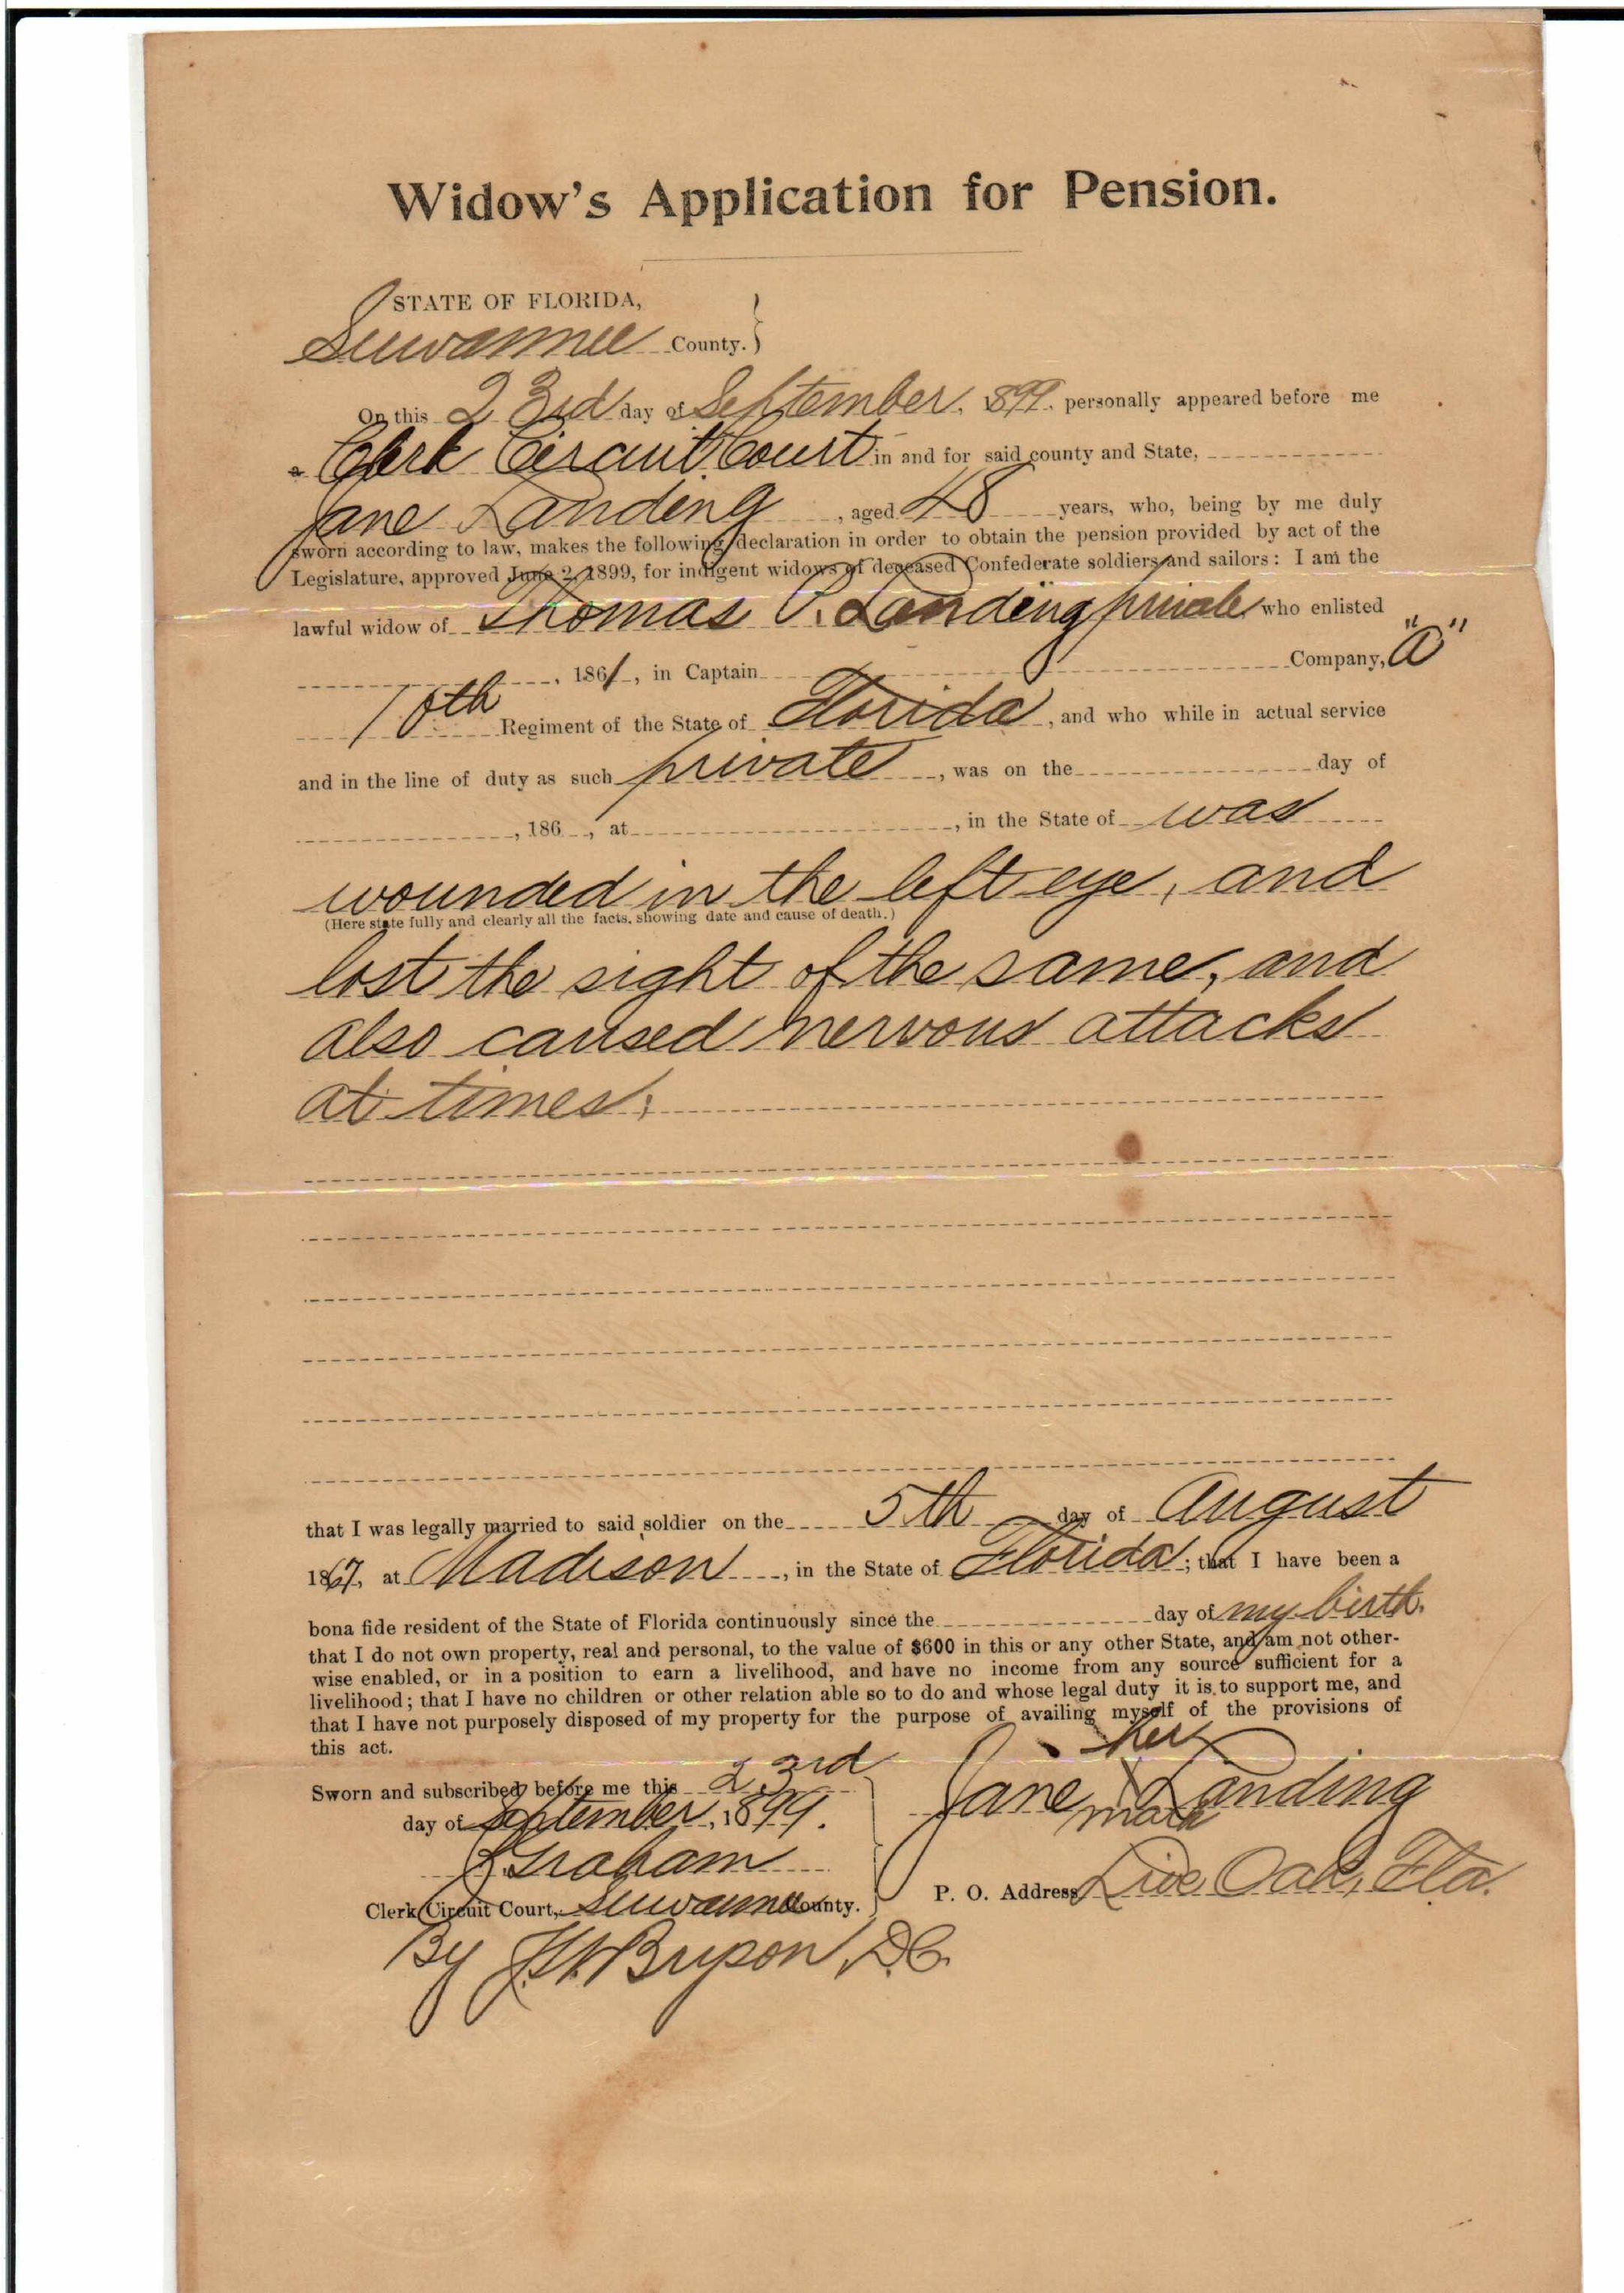 Widow's Application for Pension.
STATE OF FLORIDA,
Suwannee County.
On this 23rd day of September, 1899, personally appeared before me
a Clerk Circuit Court in and for said county and State,
Jane Landing, aged 48 years, who, being by me duly
sworn according to law, makes the following declaration in order to obtain the pension provided by act of the
Legislature, approved June 2, 1899, for indigent widows of deceased Confederate soldiers and sailors: I am the
lawful widow of Thomas P. Landing private who enlisted
, 1861, in Captain Company, "A"
10th Regiment of the State of Florida, and who while in actual service
and in the line of duty as such private, was on the day of
, 186 , at , in the State of was
wounded in the left eye, and
(Here state fully and clearly all the facts, showing date and cause of death.)
lost the sight of the same, and
also caused nervous attacks
at times;
that I was legally married to said soldier on the 5th day of August
1867, at Madison, in the State of Florida; that I have been a
bona fide resident of the State of Florida continuously since the day of my birth.
that I do not own property, real and personal, to the value of $600 in this or any other State, and am not other-
wise enabled, or in a position to earn a livelihood, and have no income from any source sufficient for a
livelihood; that I have no children or other relation able so to do and whose legal duty it is to support me, and
that I have not purposely disposed of my property for the purpose of availing myself of the provisions of
this act.
Sworn and subscribed before me this 23rd
day of September, 1899.
Graham
Clerk Circuit Court, Suwannee County.
By Bryson, D.C.
her
Jane X Landing
mark
P. O. Address Live Oak, Fla.